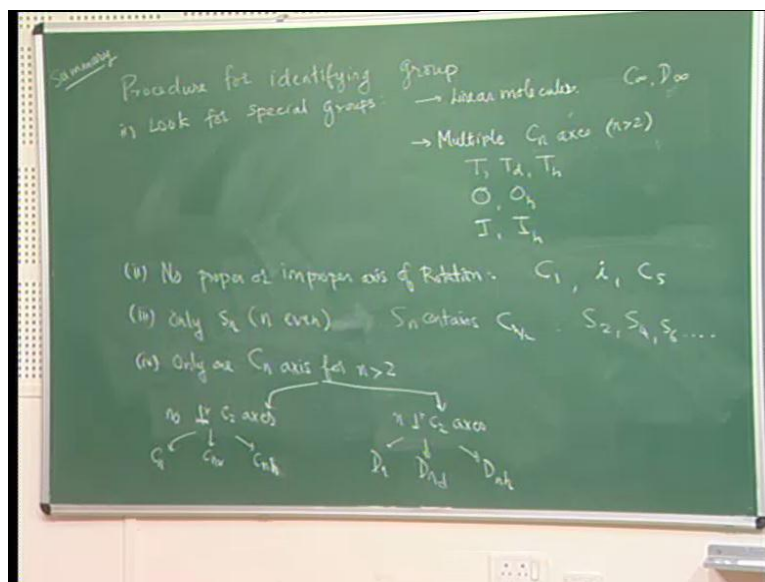 Summary
Procedure for identifying group
i) Look for special groups. → Linear molecules. C∞, D∞
→ Multiple Cn axes (n>2)
T, Td, Th
O, Oh
I, Ih
(ii) No proper or improper axis of Rotation: C1, i, Cs
(iii) Only Sn (n even) Sn contains Cn/2 S2, S4, S6 ....
(iv) Only one Cn axis for n>2
no ⊥r C2 axes n ⊥r C2 axes
Cn Cnv Cnh Dn Dnd Dnh